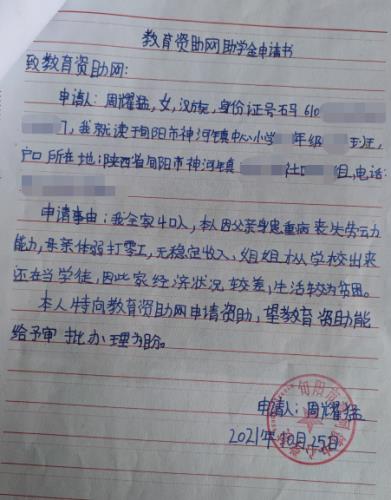 教育资助网助学金申请书
致教育资助网:
申请人:周耀猛,女,汉族,身份证号码610
7,我就读于旬阳市神河镇中心小学 年级 班,
户口所在地:陕西省旬阳市神河镇 社 组,电话:
申请事由:我全家4口人,本人因父亲身患重病丧失劳力
能力,母亲体弱打零工,无稳定收入、姐姐刚从学校出来
还在当学徒,因此家经济状况较差,生活较为贫困。
本人特向教育资助网申请资助,望教育资助能
给予审批办理为盼。
申请人:周耀猛
2021年10月25日